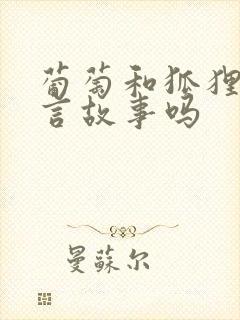 葡萄和狐狸
言故事吗
曼蘇尔